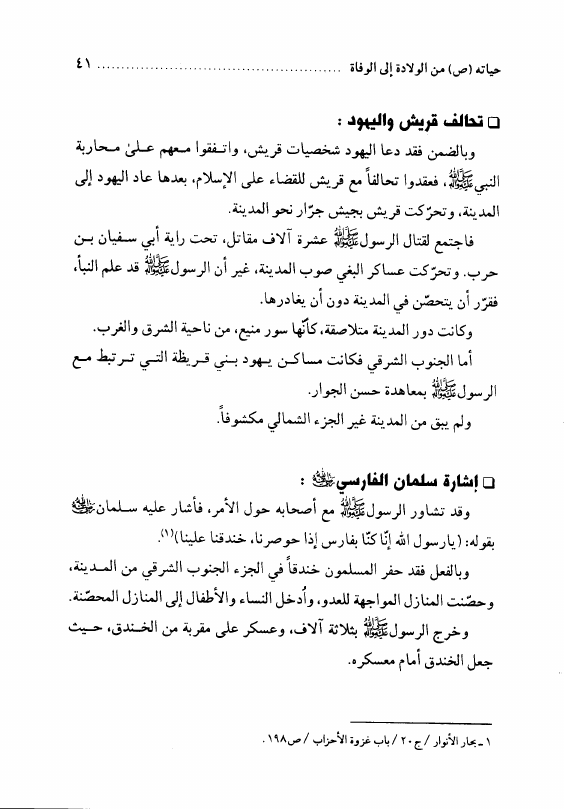 حياته (ص) من الولادة إلى الوفاة ................................................ ٤١
❑ تحالف قريش واليهود :
وبالضمن فقد دعا اليهود شخصيات قريش، واتـفقوا مـعهم عـلىٰ مـحاربة
النبي ﷺ، فعقدوا تحالفاً مع قريش للقضاء على الإسلام، بعدها عاد اليهود إلى
المدينة، وتحرّكت قريش بجيش جرّار نحو المدينة.
فاجتمع لقتال الرسول ﷺ عشرة آلاف مقاتل، تحت راية أبي سـفيان بـن
حرب. وتحرّكت عساكر البغي صوب المدينة، غير أن الرسول ﷺ قد علم النبأ،
فقرّر أن يتحصّن في المدينة دون أن يغادرها.
وكانت دور المدينة متلاصقة، كأنّها سور منيع، من ناحية الشرق والغرب.
أما الجنوب الشرقي فكانت مساكـن يـهود بـني قـريظة التـي تـرتبط مـع
الرسول ﷺ بمعاهدة حسن الجوار.
ولم يبق من المدينة غير الجزء الشمالي مكشوفاً.
❑ إشارة سلمان الفارسي :
وقد تشاور الرسول ﷺ مع أصحابه حول الأمر، فأشار عليه سـلمان
بقوله: (يارسول الله إنّا كنّا بفارس إذا حوصرنا، خندقنا علينا)(١).
وبالفعل فقد حفر المسلمون خندقاً في الجزء الجنوب الشرقي من المـدينة،
وحصّنت المنازل المواجهة للعدو، وأُدخل النساء والأطفال إلى المنازل المحصّنة.
وخرج الرسول ﷺ بثلاثة آلاف، وعسكر على مقربة من الخـندق، حـيث
جعل الخندق أمام معسكره.
١ - بحار الأنوار / ج ٢٠ / باب غزوة الأحزاب / ص ١٩٨ .